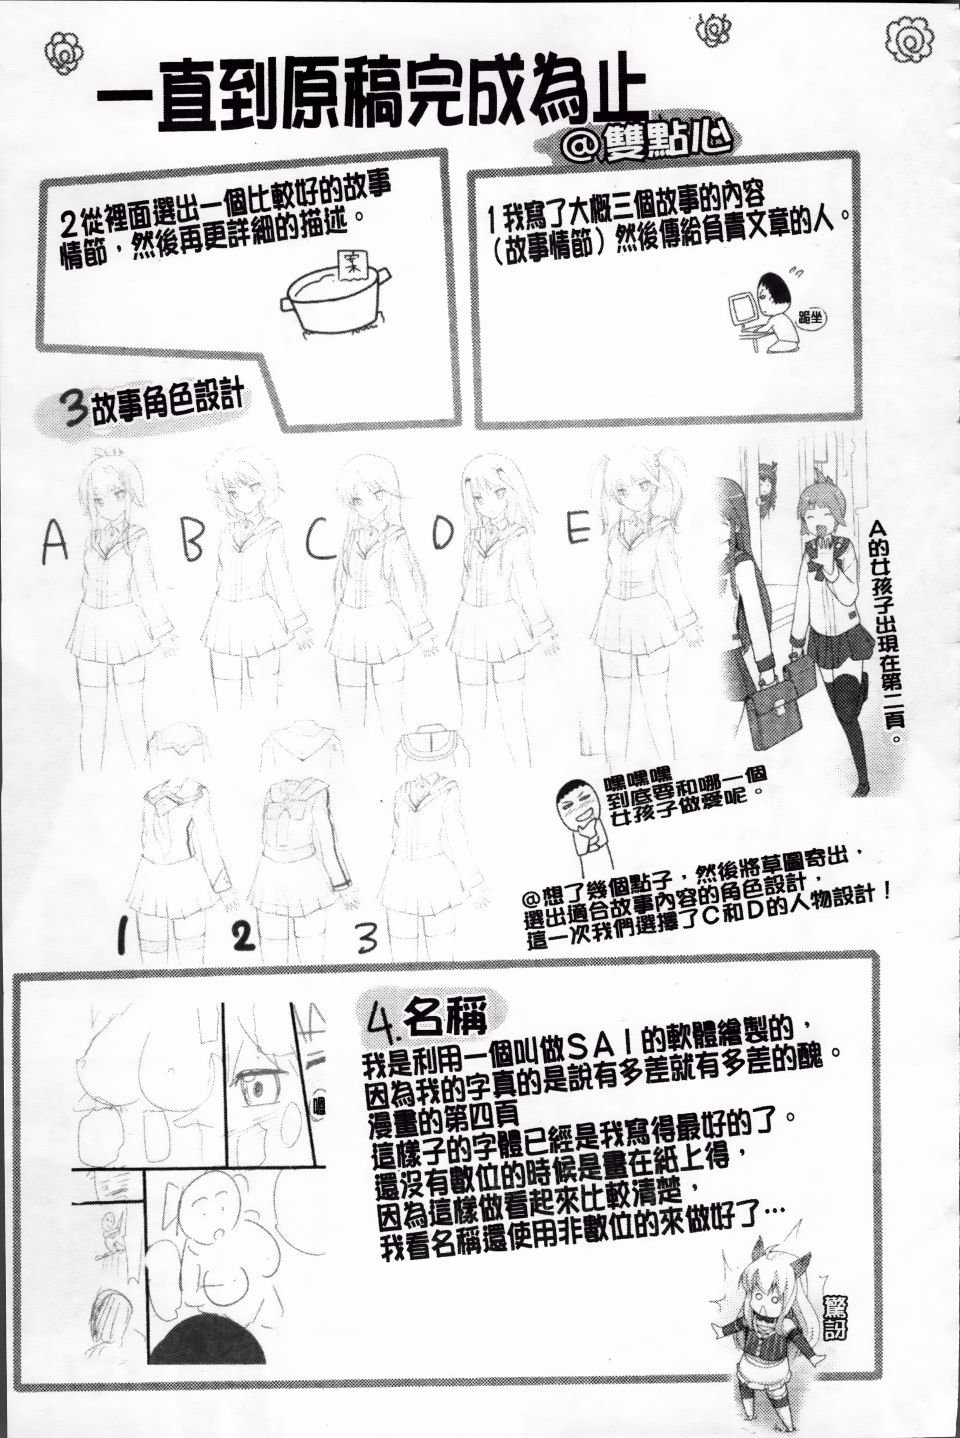 一直到原稿完成為止
@雙點心
1我寫了大概三個故事的內容
（故事情節）然後傳給負責文章的人。
跪坐
2從裡面選出一個比較好的故事
情節，然後再更詳細的描述。
案
3故事角色設計
A
B
C
D
E
A的女孩子出現在第二頁。
1
2
3
嘿嘿嘿
到底要和哪一個
女孩子做愛呢。
@想了幾個點子，然後將草圖寄出，
選出適合故事內容的角色設計，
這一次我們選擇了C和D的人物設計！
4.名稱
我是利用一個叫做SAI的軟體繪製的，
因為我的字真的是說有多差就有多差的醜。
漫畫的第四頁
這樣子的字體已經是我寫得最好的了。
還沒有數位的時候是畫在紙上得，
因為這樣做看起來比較清楚，
我看名稱還使用非數位的來做好了…
驚訝